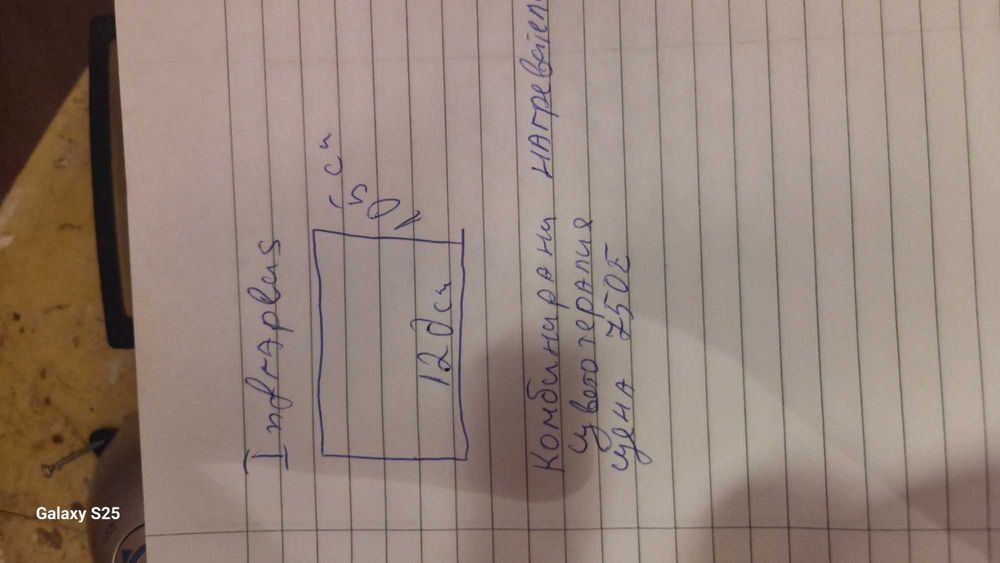 Infraplus
120см
Комбинирани нагревател
цветотерапия
цена 750Е
Galaxy S25